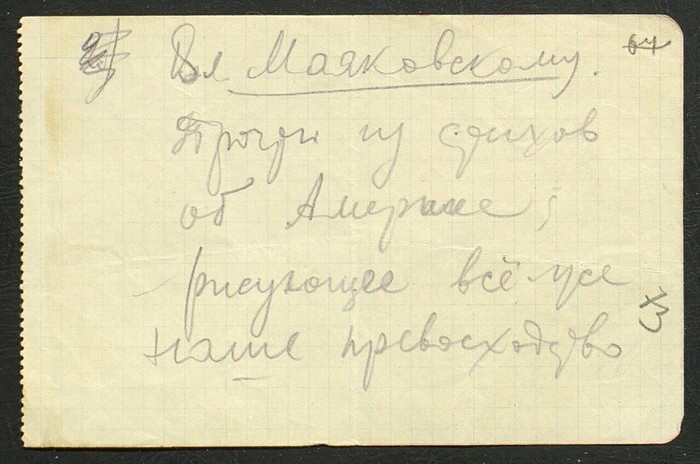 Вл Маяковскому.
64
Прочти из стихов
об Америке,
рисующее всё же
наше превосходство